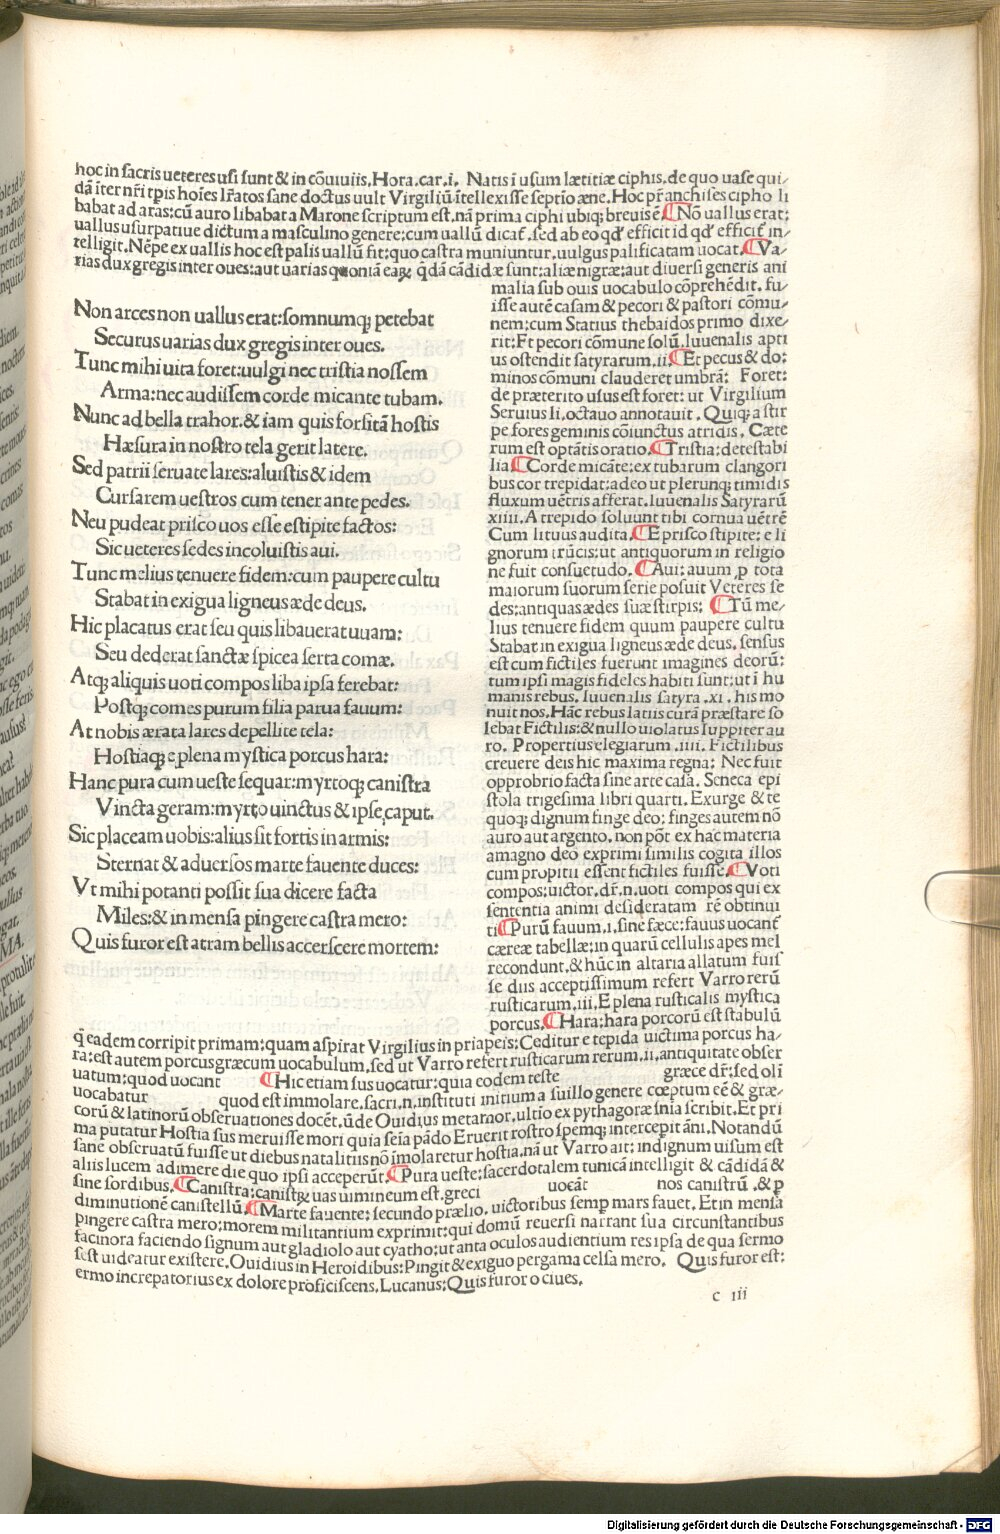 hoc in sacris ueteres usi sunt & in cõuiuiis. Hora. car. i. Natis ĩ usum lætitiæ ciphis. de quo uase qui-
dã iter nr̃i tp̃is hoĩes lr̃atos sane doctus uult Virgiliũ ĩtellexisse septio æne. Hoc pr̃ anchises cipho li
babat ad aras: cũ auro libabat a Marone scriptum est. nã prima ciphi ubiq; breuis ẽ. ¶ Nõ uallus erat:
uallus usurpatiue dictum a masculino genere: cum uallũ dicat̃. sed ab eo qd̛ efficit id qd̛ efficit̃ in-
telligit. Nẽpe ex uallis hoc est palis uallũ fit: quo castra muniuntur. uulgus palificatam uocat. ¶ Va-
rias dux gregis inter oues: aut uarias quoniã eaꝝ q̃dã cãdidæ sunt: aliæ nigræ: aut diuersi generis ani
malia sub ouis uocabulo cõprehẽdit. fu-
isse autẽ casam & pecori & pastori cõmu-
nem: cum Statius thebaidos primo dixe-
rit: Et pecori cõmune solũ. Iuuenalis apti
us ostendit satyrarum. ii. ¶ Et pecus & do:
minos cõmuni clauderet umbrã: Foret:
de præterito usus est foret: ut Virgilium
Seruius li. octauo annotauit. Quiq; a stir
pe fores geminis cõiunctus atridis. Cæte
rum est optãtis oratio. ¶ Tristia: detestabi
lia ¶ Corde micãte: ex tubarum clangori
bus cor trepidat: adeo ut plerunq; timidis
fluxum uẽtris afferat. Iuuenalis Satyrarũ
xiiii. A trepido soluunt tibi cornua uẽtrẽ
Cum lituus audita. ¶ E prisco stipite: e li
gnorum trũcis: ut antiquorum in religio
ne fuit consuetudo. ¶ Aui: auum ꝓ tota
maiorum suorum serie posuit Veteres se
des: antiquas ædes suæ stirpis: ¶ Tũ me-
lius tenuere fidem quum paupere cultu
Stabat in exigua ligneus æde deus. sensus
est cum fictiles fuerunt imagines deorũ:
tum ipsi magis fideles habiti sunt: ut ĩ hu
manis rebus. Iuuenalis satyra .xi. his mo
nuit nos. Hãc rebus latiis curã præstare so
lebat Fictilis: & nullo uiolatus iuppiter au
ro. Propertius elegiarum .iiii. Fictilibus
creuere deis hic maxima regna: Nec fuit
opprobrio facta sine arte casa. Seneca epi
stola trigesima libri quarti. Exurge & te
quoq; dignum finge deo: finges autem nõ
auro aut argento. non põt ex hac materia
amagno deo exprimi similis cogita illos
cum propitii essent fictiles fuisse. ¶ Voti
compos: uictor. dr̃. n. uoti compos qui ex
sententia animi desideratam rẽ obtinui
ti ¶ Purũ fauum. i. sine fæce: fauus uocant̃
cæreæ tabellæ: in quarũ cellulis apes mel
recondunt. & hũc in altaria allatum fuis
se diis acceptissimum refert Varro rerũ
rusticarum. iii. E plena rusticalis mystica
porcus. ¶ Hara: hara porcorũ est stabulũ
Non arces non uallus erat: somnumq; petebat
Securus uarias dux gregis inter oues.
Tunc mihi uita foret: uulgi nec tristia nossem
Arma: nec audissem corde micante tubam.
Nunc ad bella trahor. & iam quis forsitã hostis
Hæsura in nostro tela gerit latere.
Sed patrii seruate lares: aluistis & idem
Cursarem uestros cum tener ante pedes.
Neu pudeat prisco uos esse e stipite factos:
Sic ueteres sedes incoluistis aui.
Tunc melius tenuere fidem: cum paupere cultu
Stabat in exigua ligneus æde deus.
Hic placatus erat seu quis libauerat uuam:
Seu dederat sanctæ spicea serta comæ.
Atq; aliquis uoti compos liba ipsa ferebat:
Postq; comes purum filia parua fauum:
At nobis ærata lares depellite tela:
Hostiaq; e plena mystica porcus hara:
Hanc pura cum ueste sequar: myrtoq; canistra
Vincta geram: myrto uinctus & ipse caput.
Sic placeam uobis: alius sit fortis in armis:
Sternat & aduersos marte fauente duces:
Vt mihi potanti possit sua dicere facta
Miles: & in mensa pingere castra mero:
Quis furor est atram bellis accersere mortem:
q̃ eadem corripit primam: quam aspirat Virgilius in priapeis: Ceditur e tepida uictima porcus ha-
ra: est autem porcus græcum uocabulum. sed ut Varro refert rusticarum rerum. ii. antiquitate obser
uatum: quod uocant ¶ Hic etiam sus uocatur: quia eodem teste græce dr̃: sed oli
uocabatur quod est immolare. sacri. n. instituti initium a suillo genere cœptum eẽ & græ-
corũ & latinorũ obseruationes docẽt. ũde Ouidius metamor. ultio ex pythagoræ snĩa scribit. Et pri
ma putatur Hostia sus meruisse mori quia seĩa pãdo Eruerit rostro spemq; intercepit ãni. Notandũ
sane obseruatũ fuisse ut diebus natalitiis nõ ĩmolaretur hostia. nã ut Varro ait: indignum uisum est
aliis lucem adimere die quo ipsi acceperũt. ¶ Pura ueste: sacerdotalem tunicã intelligit & cãdidã &
sine sordibus. ¶ Canistra: canistꝝ uas uimineum est. greci uocãt nos canistrũ. & ꝑ
diminutionẽ canistellũ. ¶ Marte fauente: secundo prælio. uictoribus semp mars fauet. Et in mensa
pingere castra mero: morem militantium exprimit: qui domũ reuersi narrant sua circunstantibus
facinora faciendo signum aut gladiolo aut cyatho: ut anta oculos audientium res ipsa de qua sermo
sest uideatur existere. Ouidius in Heroidibus: Pingit & exiguo pergama celsa mero. Quis furor est:
ermo increpatorius ex dolore proficiscens. Lucanus: Quis furor o ciues.
c iii
Digitalisierung gefördert durch die Deutsche Forschungsgemeinschaft - DFG